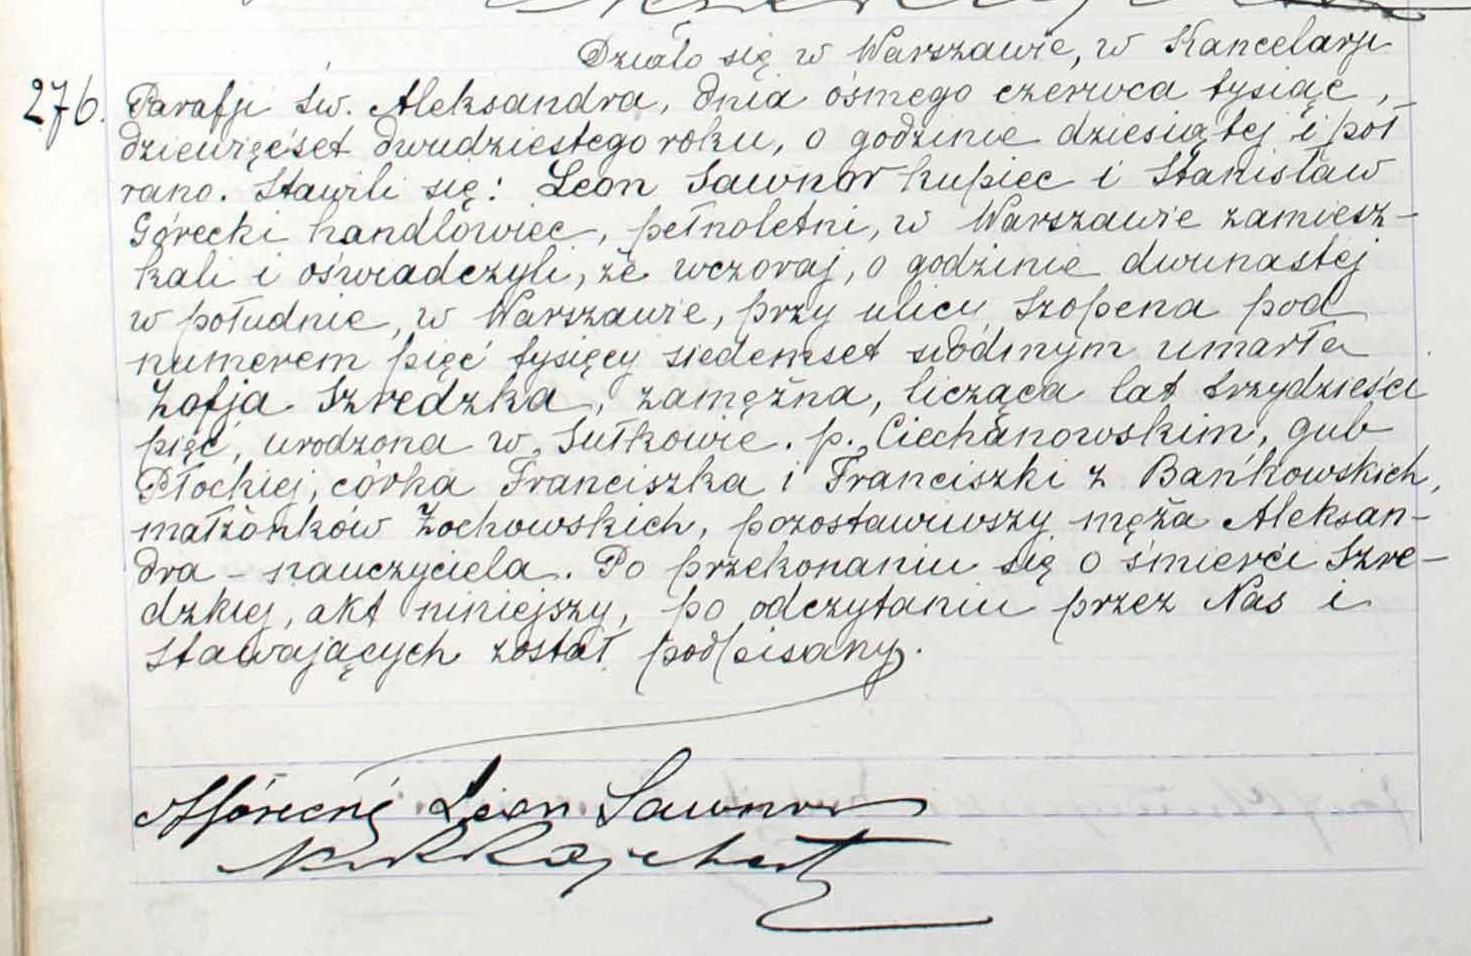 Działo się w Warszawie, w Kancelarji
276. Parafji św. Aleksandra, dnia ósmego czerwca tysiąc,
dziewięćset dwudziestego roku, o godzinie dziesiątej i pół
rano. Stawili się: Leon Sawnor kupiec i Stanisław
Górecki handlowiec, pełnoletni, w Warszawie zamiesz-
kali i oświadczyli, że wczoraj, o godzinie dwunastej
w południe, w Warszawie, przy ulicy Szopena pod
numerem pięć tysięcy siedemset siódmym umarła
Zofja Szredzka, zamężna, licząca lat trzydzieści
pięć, urodzona w Sułkowie. p. Ciechanowskim, gub
Płockiej, córka Franciszka i Franciszki z Bańkowskich,
małżonków Żochowskich, pozostawiwszy męża Aleksan-
dra - nauczyciela. Po przekonaniu się o śmierci Szre-
dzkiej, akt niniejszy, po odczytaniu przez Nas i
stawających został podpisany.
Górecki Leon Sawnor